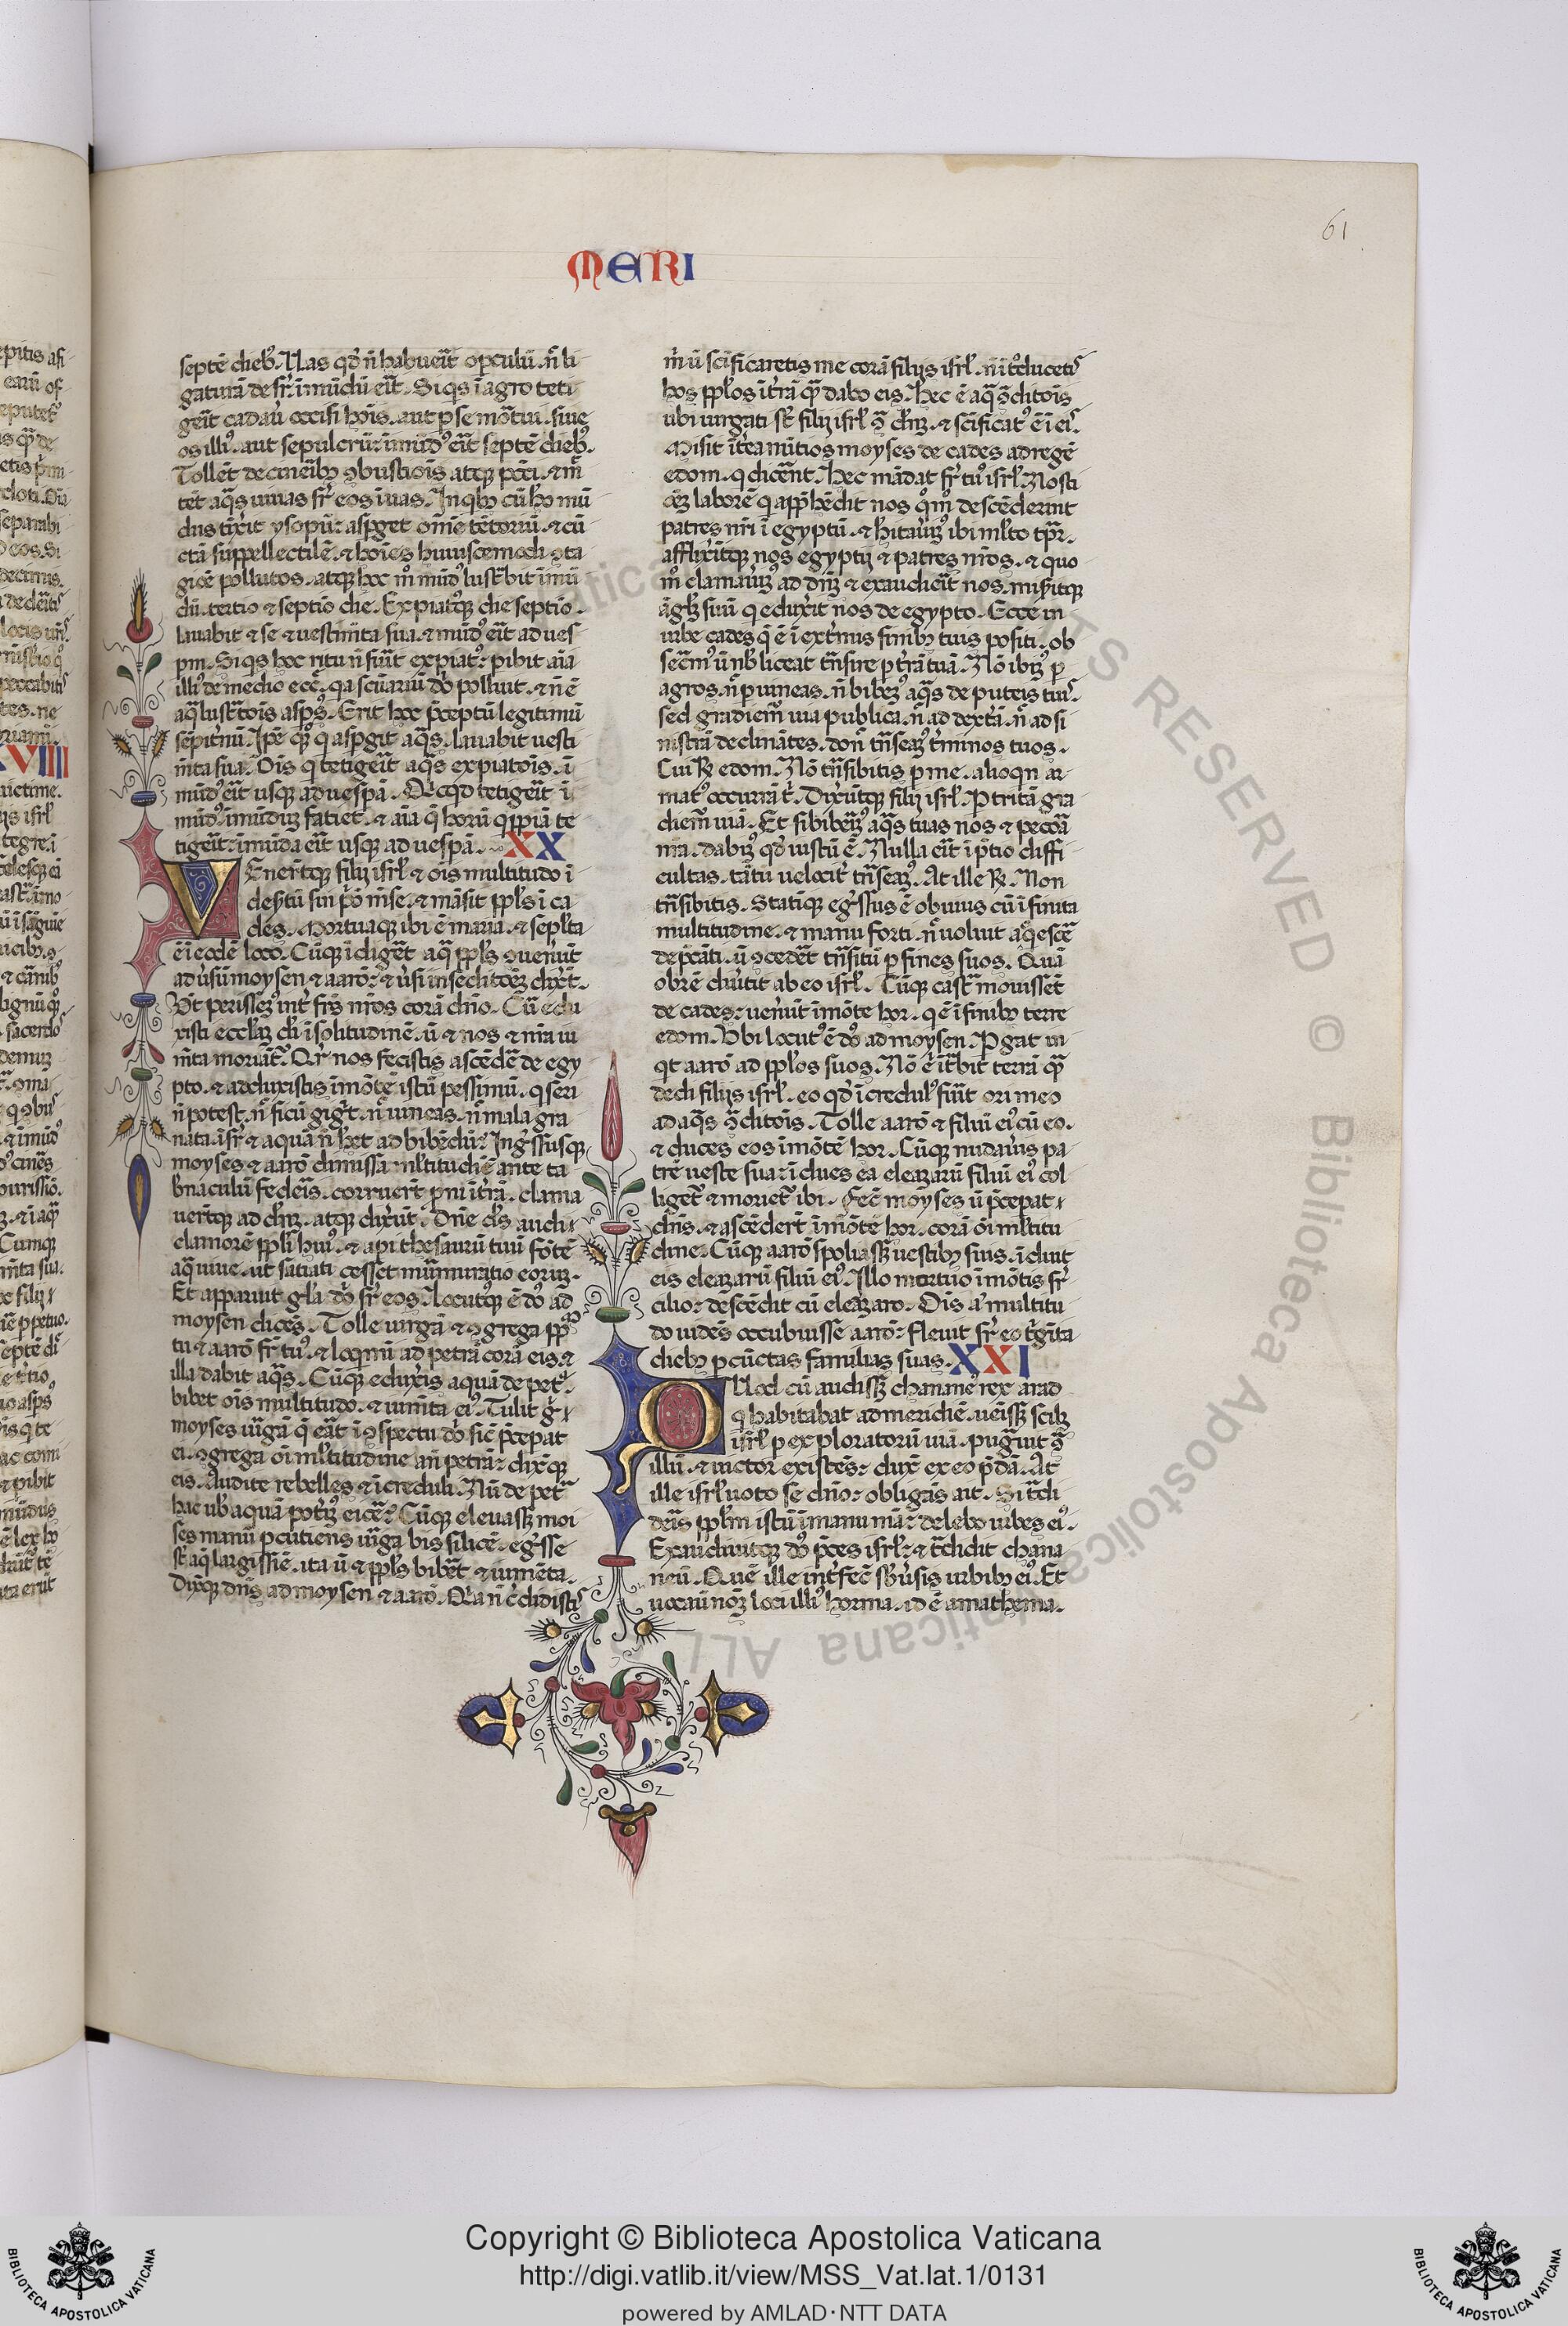 61
MERI
septē dieb⁹. Uas qd̄ n̄ habuēit opculū. n̄ li
gaturā de sr̄. īmūdū eīt. Siqs ī agro teti
geīt cadau occisi hoīs. aut p se mōtui. siue
os illi⁹. aut sepulcrū: īmūd⁹ eīt septē dieb⁹.
Tollēt de cineib⁹ ꝯbustiōis atqꝫ pctī. ⁊ mī
tēt aq̄s uiuas sr̄ eos ī uas. In qb⁹ cū hō mū
dus tīxit ysopū: aspget om̄e tētoriū. ⁊ cū
ctā suppellectilē. ⁊ hoīes huiuscemodi ꝯta
giōe pollutos. atqꝫ hoc m̊ mūd⁹ lustbit īmū
dū. tertio ⁊ septīo die. Expiat⁹qꝫ die septīo.
lauabit ⁊ se ⁊ uestim̄ta sua. ⁊ mūd⁹ eīt ad ues
pm. Siqs hoc ritu n̄ fūit expiat⁹: pibit aīa
illi⁹ de medio ecc̄e. qa sc̄uariū dn̄i polluit. ⁊ n̄ ē
aq̄ lustt̄ois asps⁹. Erit hoc p̄ceptū legitimū
sēpit̄nū. Ip̄e qꝫ q aspgit aq̄s. lauabit uesti
m̄ta sua. Oīs q tetigeīt aq̄s expiatōīs. ī
mūd⁹ eīt usqꝫ ad uespā. Qcqd tetigeīt ī
mūd⁹. īmūdū faciet. ⁊ aīa q̄ horū qppiā te
tigeīt: īmūda eīt usqꝫ ad uespā. XX
Venerūtqꝫ filij isrl̄ ⁊ oīs multitudo ī
desertū sin p̄o mēse. ⁊ māsit ppl̄s ī ca
des. Mortuaqꝫ ibi ē maria. ⁊ sepl̄ta
ē ī eodē loco. Cūqꝫ īdigēt aq̄ ppl̄s ꝯuenūt
ad ūsū moysen ⁊ aarō: ⁊ ūsi in seditōeꝫ dixīt.
Vt perissēꝫ int̄ frīs nr̄os corā dn̄o. Cū edu
xisti eccl̄iaꝫ dn̄i ī solitudinē. ū ⁊ nos ⁊ nr̄a iu
m̄ta moriāt̄. Qr nos fecistis ascēdē de egy
pto. ⁊ adduxistis īmōtē istū pessimū. q seri
n̄ potest. n̄ ficū gigīt. n̄ uineas. n̄ mala gra
nata. īsr̄ ⁊ aquā n̄ h̄et ad bibēdū? Ingr̄ssusqꝫ
moyses ⁊ aarō dimissa ml̄titudīe ante ta
b̄naculū fedeīs. corruert̄ pni ī t̄rā. clama
uert̄qꝫ ad dn̄ꝫ. atqꝫ dixūt. Dn̄e ds̄ audi
clamorē ppl̄i hui⁹. ⁊ api thesaurū tuū fōtē
aq̄ uiue. ut satiati cesset murmuratio eorūꝫ.
Et apparuit gl̄a dn̄i sr̄ eos. Locut⁹qꝫ ē dn̄s ad
moysen dicēs. Tolle uirgā ⁊ ꝯgrega pplm̄
tu ⁊ aarō fr̄ tu⁹. ⁊ loqmī ad petrā corā eis. ⁊
illa dabit aq̄s. Cūqꝫ eduxīs aquā de pet̄.
bibet oīs multitudo. ⁊ ium̄ta ei⁹. Tulit gr
moyses uīgā q̄ eāt ī ꝯspectu dn̄i sīc p̄cepat
ei. ꝯgrega oī ml̄titudine an̄ petrā: dixītqꝫ
eis. Audite rebelles ⁊ īcreduli. Nū de pet̄
hac uob̄ aquā pot̄īꝫ eicē? Cūqꝫ eleuassꝫ moi
ses manū pcutiens uīga bis silicē. eḡsse
st̄ aq̄ largissīe. ita ū ⁊ ppl̄s bibēt ⁊ iumēta.
Dixitqꝫ dn̄s ad moysen ⁊ aarō. Qa n̄ c̄didistis
m̄ ū sc̄ificaretis me corā filijs isrl̄. n̄ īt̄ducetis
hos ppl̄os ī t̄rā q̄ dabo eis. Hec ē aq̄ ꝯ̄dictōīs
ubi iurgati st̄ filij isrl̄ ꝯ̄ dn̄ꝫ. ⁊ sc̄ificat⁹ ē ī eis.
Misit īt̄ea nūtios moyses de cades ad regē
edom. q dicēnt. Hec mādat fr̄ tu⁹ isrl̄. Nosti
oēꝫ laborē q app̄hēdit nos. qm̊ descēderunt
patres nr̄i ī egyptū. ⁊ hitauīꝫ ibi ml̄to tpr̄.
afflixītqꝫ nos egyptij ⁊ patres nr̄os. ⁊ quo
m̊ clamauīꝫ ad dn̄ꝫ ⁊ exaudieīt nos. misitqꝫ
āglꝫ suū q eduxīt nos de egypto. Ecce in
urbe cades q̄ ē ī ext̄mis finib⁹ tuis positi. ob
secm̄⁹ ū nb̄ liceat t̄nsire p t̄rā tuā. Nō ibīꝫ p
agros. n̄ p uineas. n̄ bibēꝫ aq̄s de puteis tuis.
sed gradiem̄ uia publica. n̄ ad dextā. n̄ ad si
nistrā declinātes. don̄ t̄nseaꝫ t̄minos tuos.
Cui R̄ edom. Nō t̄nsibitis p me. alioqn ar
mat⁹ occurrā t. Dixūtqꝫ filij isrl̄. P tritā gra
diem̄ uiā. Et si bibēꝫ aq̄s tuas nos ⁊ pecōa
nr̄a. dabīꝫ qd̄ iustū ē. Nulla eīt ī p̄tio diffi
cultas. tātū uelocīt t̄nseaꝫ. At ille R̄. Non
t̄nsibitis. Statīqꝫ egr̄ssus ē obuius cū ī finita
multitudine. ⁊ manu forti. n̄ uoluit aq̄escē
dep̄cāti. ū ꝯcedēt t̄nsitū p fines suos. Quā
obrē diūtit ab eo isrl̄. Cūqꝫ cast̄ mouissēt
de cades: uenūt īmōte hor. q ē ī finib⁹ terre
edom. Vbi locut⁹ ē dn̄s ad moysen. Pgat in
qt aarō ad ppl̄os suos. Nō ē īt̄bit terrā q̄
dedi filijs isrl̄. eo qd̄ īcredul⁹ fūit ori meo
ad aq̄s ꝯ̄dictōīs. Tolle aarō ⁊ filiū ei⁹ cū eo.
⁊ duces eos īmōtē hor. Cūqꝫ nudauīs pa
trē ueste sua: īdues ea eleazarū filiū ei⁹. col
liget̄ ⁊ moriet̄ ibi. Fecī moyses ū p̄cepat
dn̄s. ⁊ ascēdert̄ īmōtē hor. corā oī ml̄titu
dine. Cūqꝫ aarō spoliassꝫ uestib⁹ suis. īduit
eis eleazarū filiū ei⁹. Illo mortuo īmōtis sr̄
cilio: dēscēdit cū eleazaro. Oīs a͛ multitu
do uidēs occubuisse aarō: fleuit sr̄ eo t̄gīta
dieb⁹ p cūctas familias suas. XXI
Quod cū audissꝫ chananēꝰ rex arad
q habitabat ad meridiē. uēissꝫ sciꝫ
isrl̄ p exploratorū uiā. pugnuit ꝯ̄
illū. ⁊ uictor existēs: duxī ex eo p̄dā. At
ille isrl̄ uoto se dn̄o: obligās ait. Si t̄di
deīs ppl̄m istū īmanu mā: delebo urbes ei⁹.
Exaudiuitqꝫ dn̄s p̄ces isrl̄: ⁊ t̄didit chana
neū. Quē ille int̄fēc sb̄ūsis urbib⁹ ei⁹. Et
uocauī nōꝫ loci illi⁹ horma. id ē anathema.
Copyright © Biblioteca Apostolica Vaticana
http://digi.vatlib.it/view/MSS_Vat.lat.1/0131
powered by AMLAD·NTT DATA